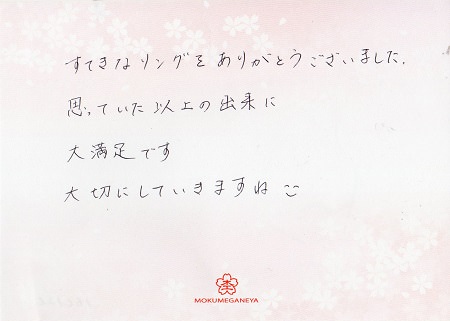 すてきなリングをありがとうございました.
思っていた以上の出来に
大満足です
大切にしていきますね
MOKUMEGANEYA